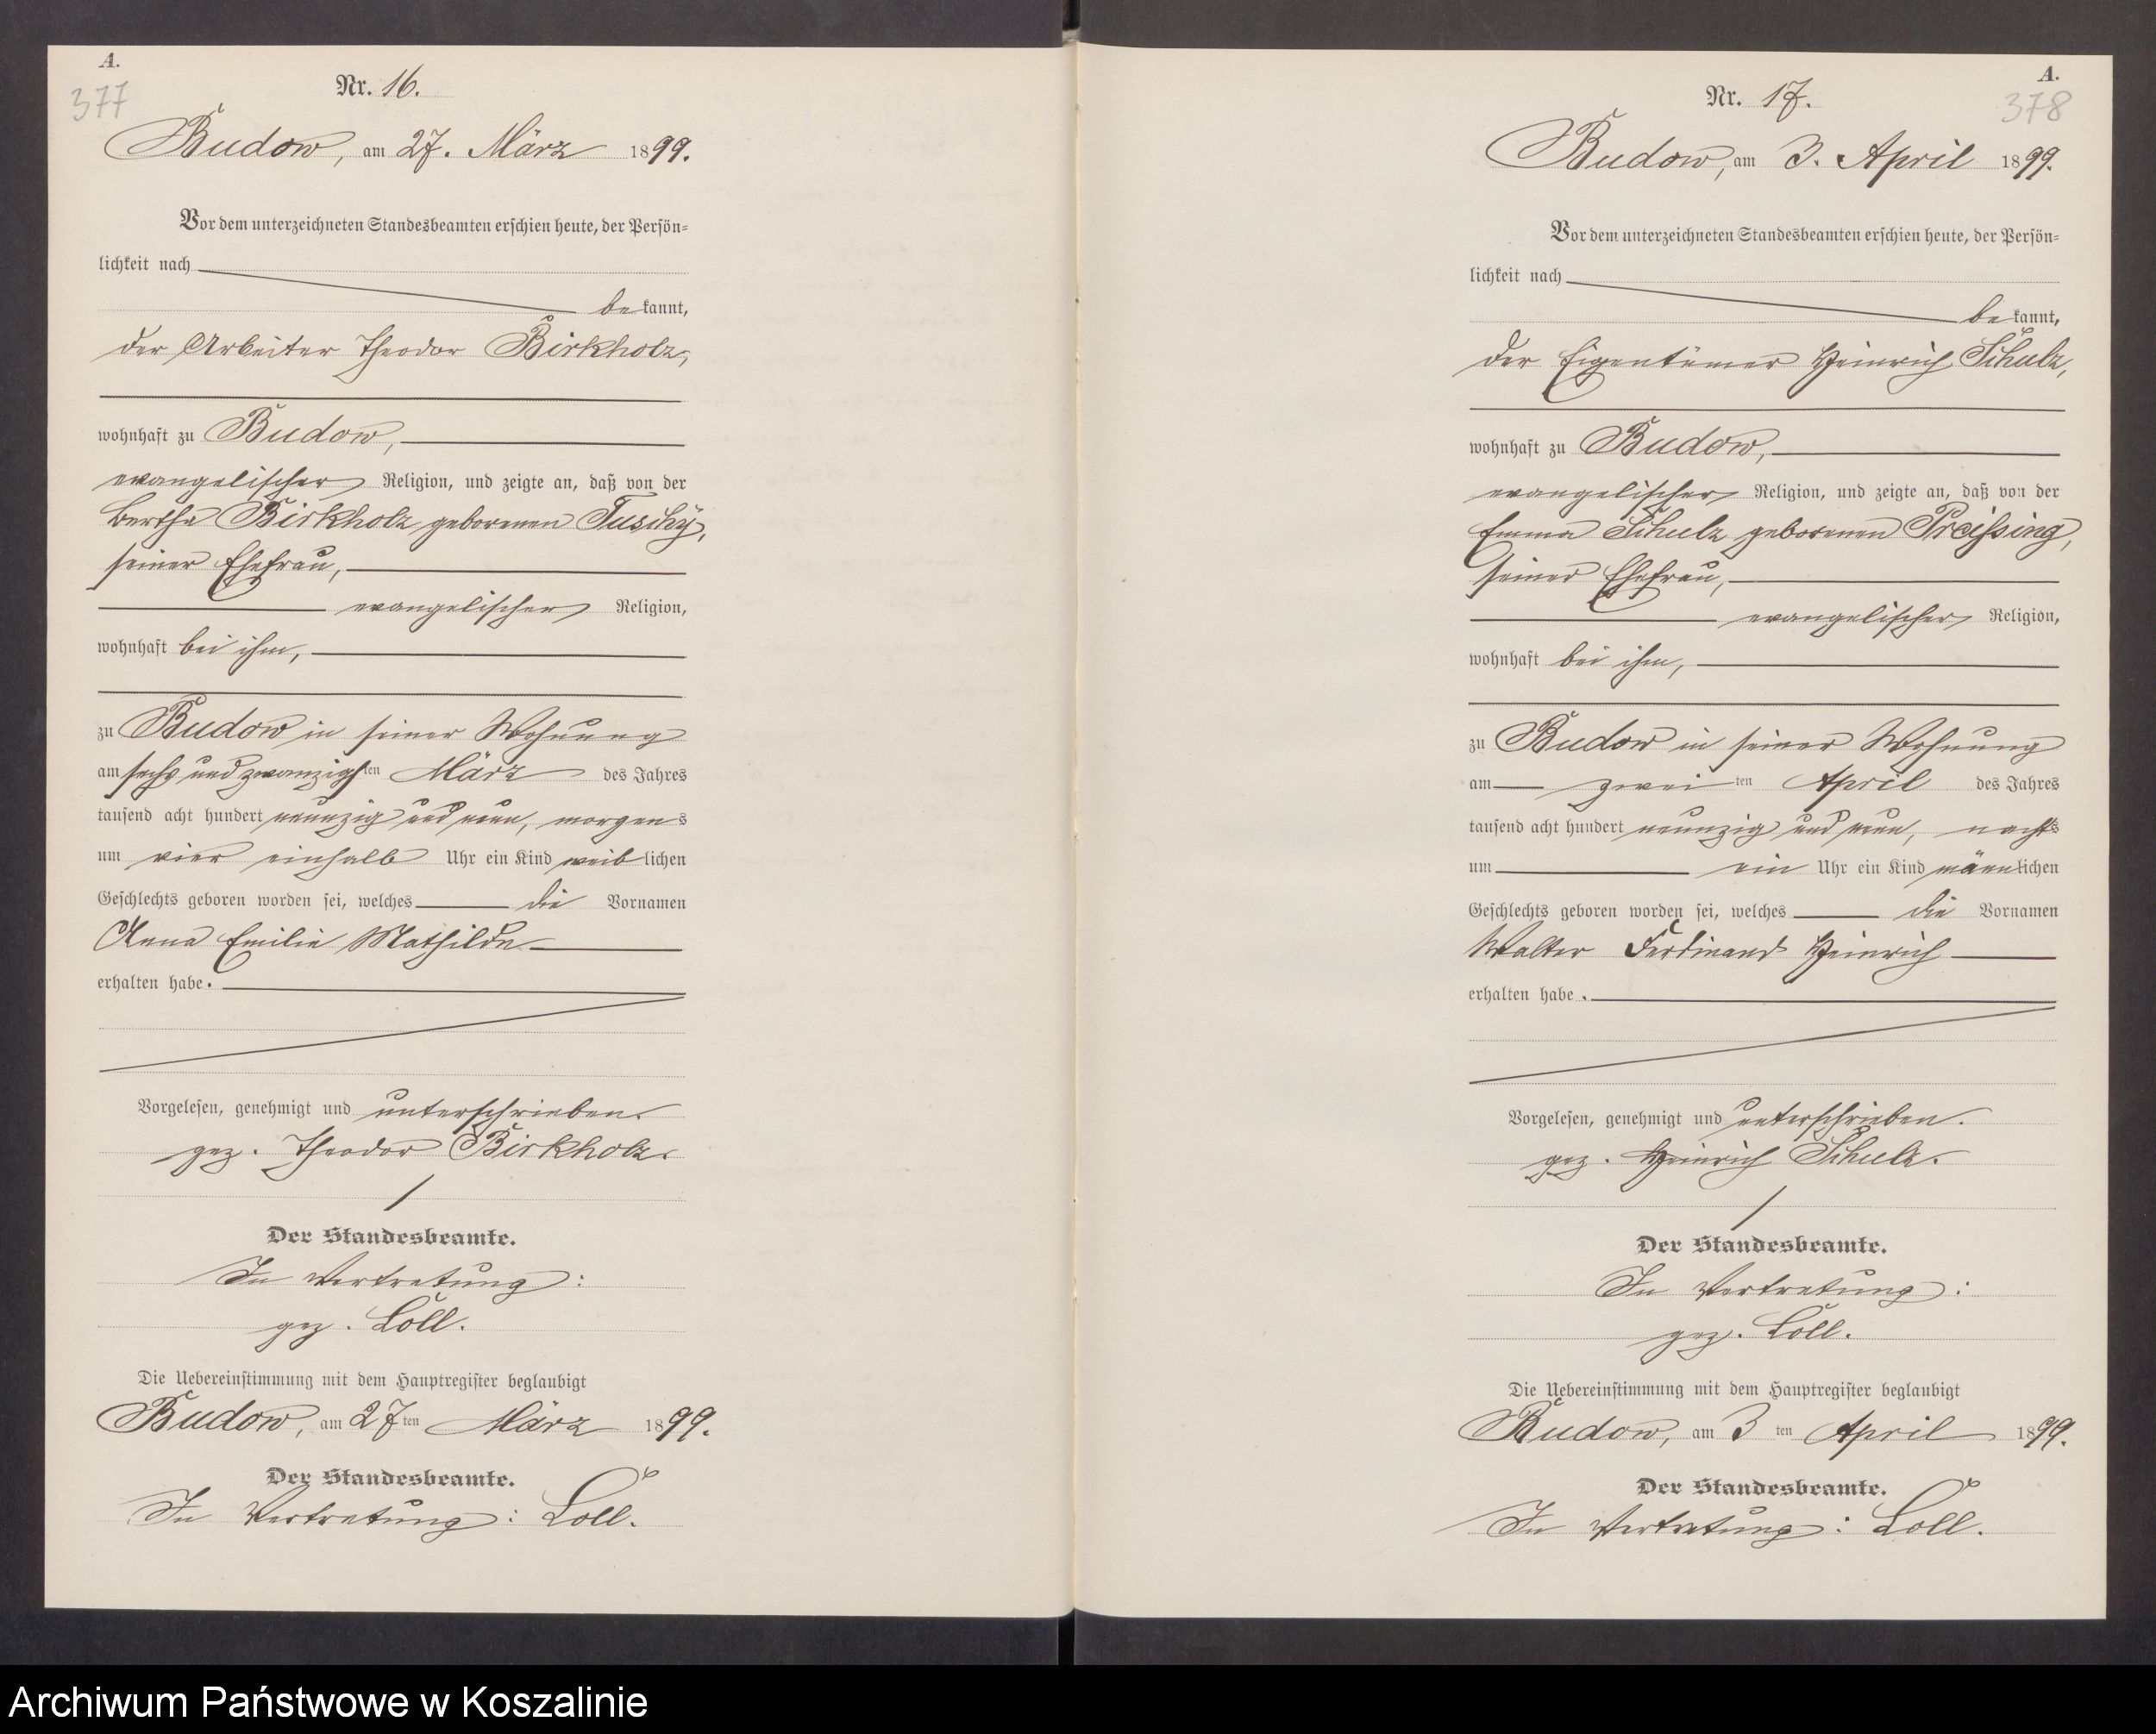 A.
377
Nr. 16.
Budow, am 27. März 1899.
Vor dem unterzeichneten Standesbeamten erschien heute, der Persön-
lichkeit nach
bekannt,
der Arbeiter Theodor Birkholz,
wohnhaft zu Budow,
evangelischer Religion, und zeigte an, daß von der
Bertha Birkholz geborenen Tuschÿ,
seiner Ehefrau,
evangelischer Religion,
wohnhaft bei ihm,
zu Budow in seiner Wohnung
am sechs und zwanzigsten März des Jahres
tausend acht hundert neunzig und neun, morgens
um vier einhalb Uhr ein Kind weiblichen
Geschlechts geboren worden sei, welches die Vornamen
Anna Emilie Mathilde
erhalten habe.
Vorgelesen, genehmigt und unterschrieben.
gez. Theodor Birkholz.
Der Standesbeamte.
In Vertretung:
gez. Loll.
Die Uebereinstimmung mit dem Hauptregister beglaubigt
Budow, am 27ten März 1899.
Der Standesbeamte.
In Vertretung: Loll.
A.
378
Nr. 17.
Budow, am 3. April 1899.
Vor dem unterzeichneten Standesbeamten erschien heute, der Persön-
lichkeit nach
bekannt,
der Eigentümer Heinrich Schulz,
wohnhaft zu Budow,
evangelischer Religion, und zeigte an, daß von der
Emma Schulz geborenen Preißing,
seiner Ehefrau,
evangelischer Religion,
wohnhaft bei ihm,
zu Budow in seiner Wohnung
am zweiten April des Jahres
tausend acht hundert neunzig und neun, nachts
um ein Uhr ein Kind männlichen
Geschlechts geboren worden sei, welches die Vornamen
Walter Ferdinand Heinrich
erhalten habe.
Vorgelesen, genehmigt und unterschrieben.
gez. Heinrich Schulz.
Der Standesbeamte.
In Vertretung:
gez. Loll.
Die Uebereinstimmung mit dem Hauptregister beglaubigt
Budow, am 3ten April 1899.
Der Standesbeamte.
In Vertretung: Loll.
Archiwum Państwowe w Koszalinie